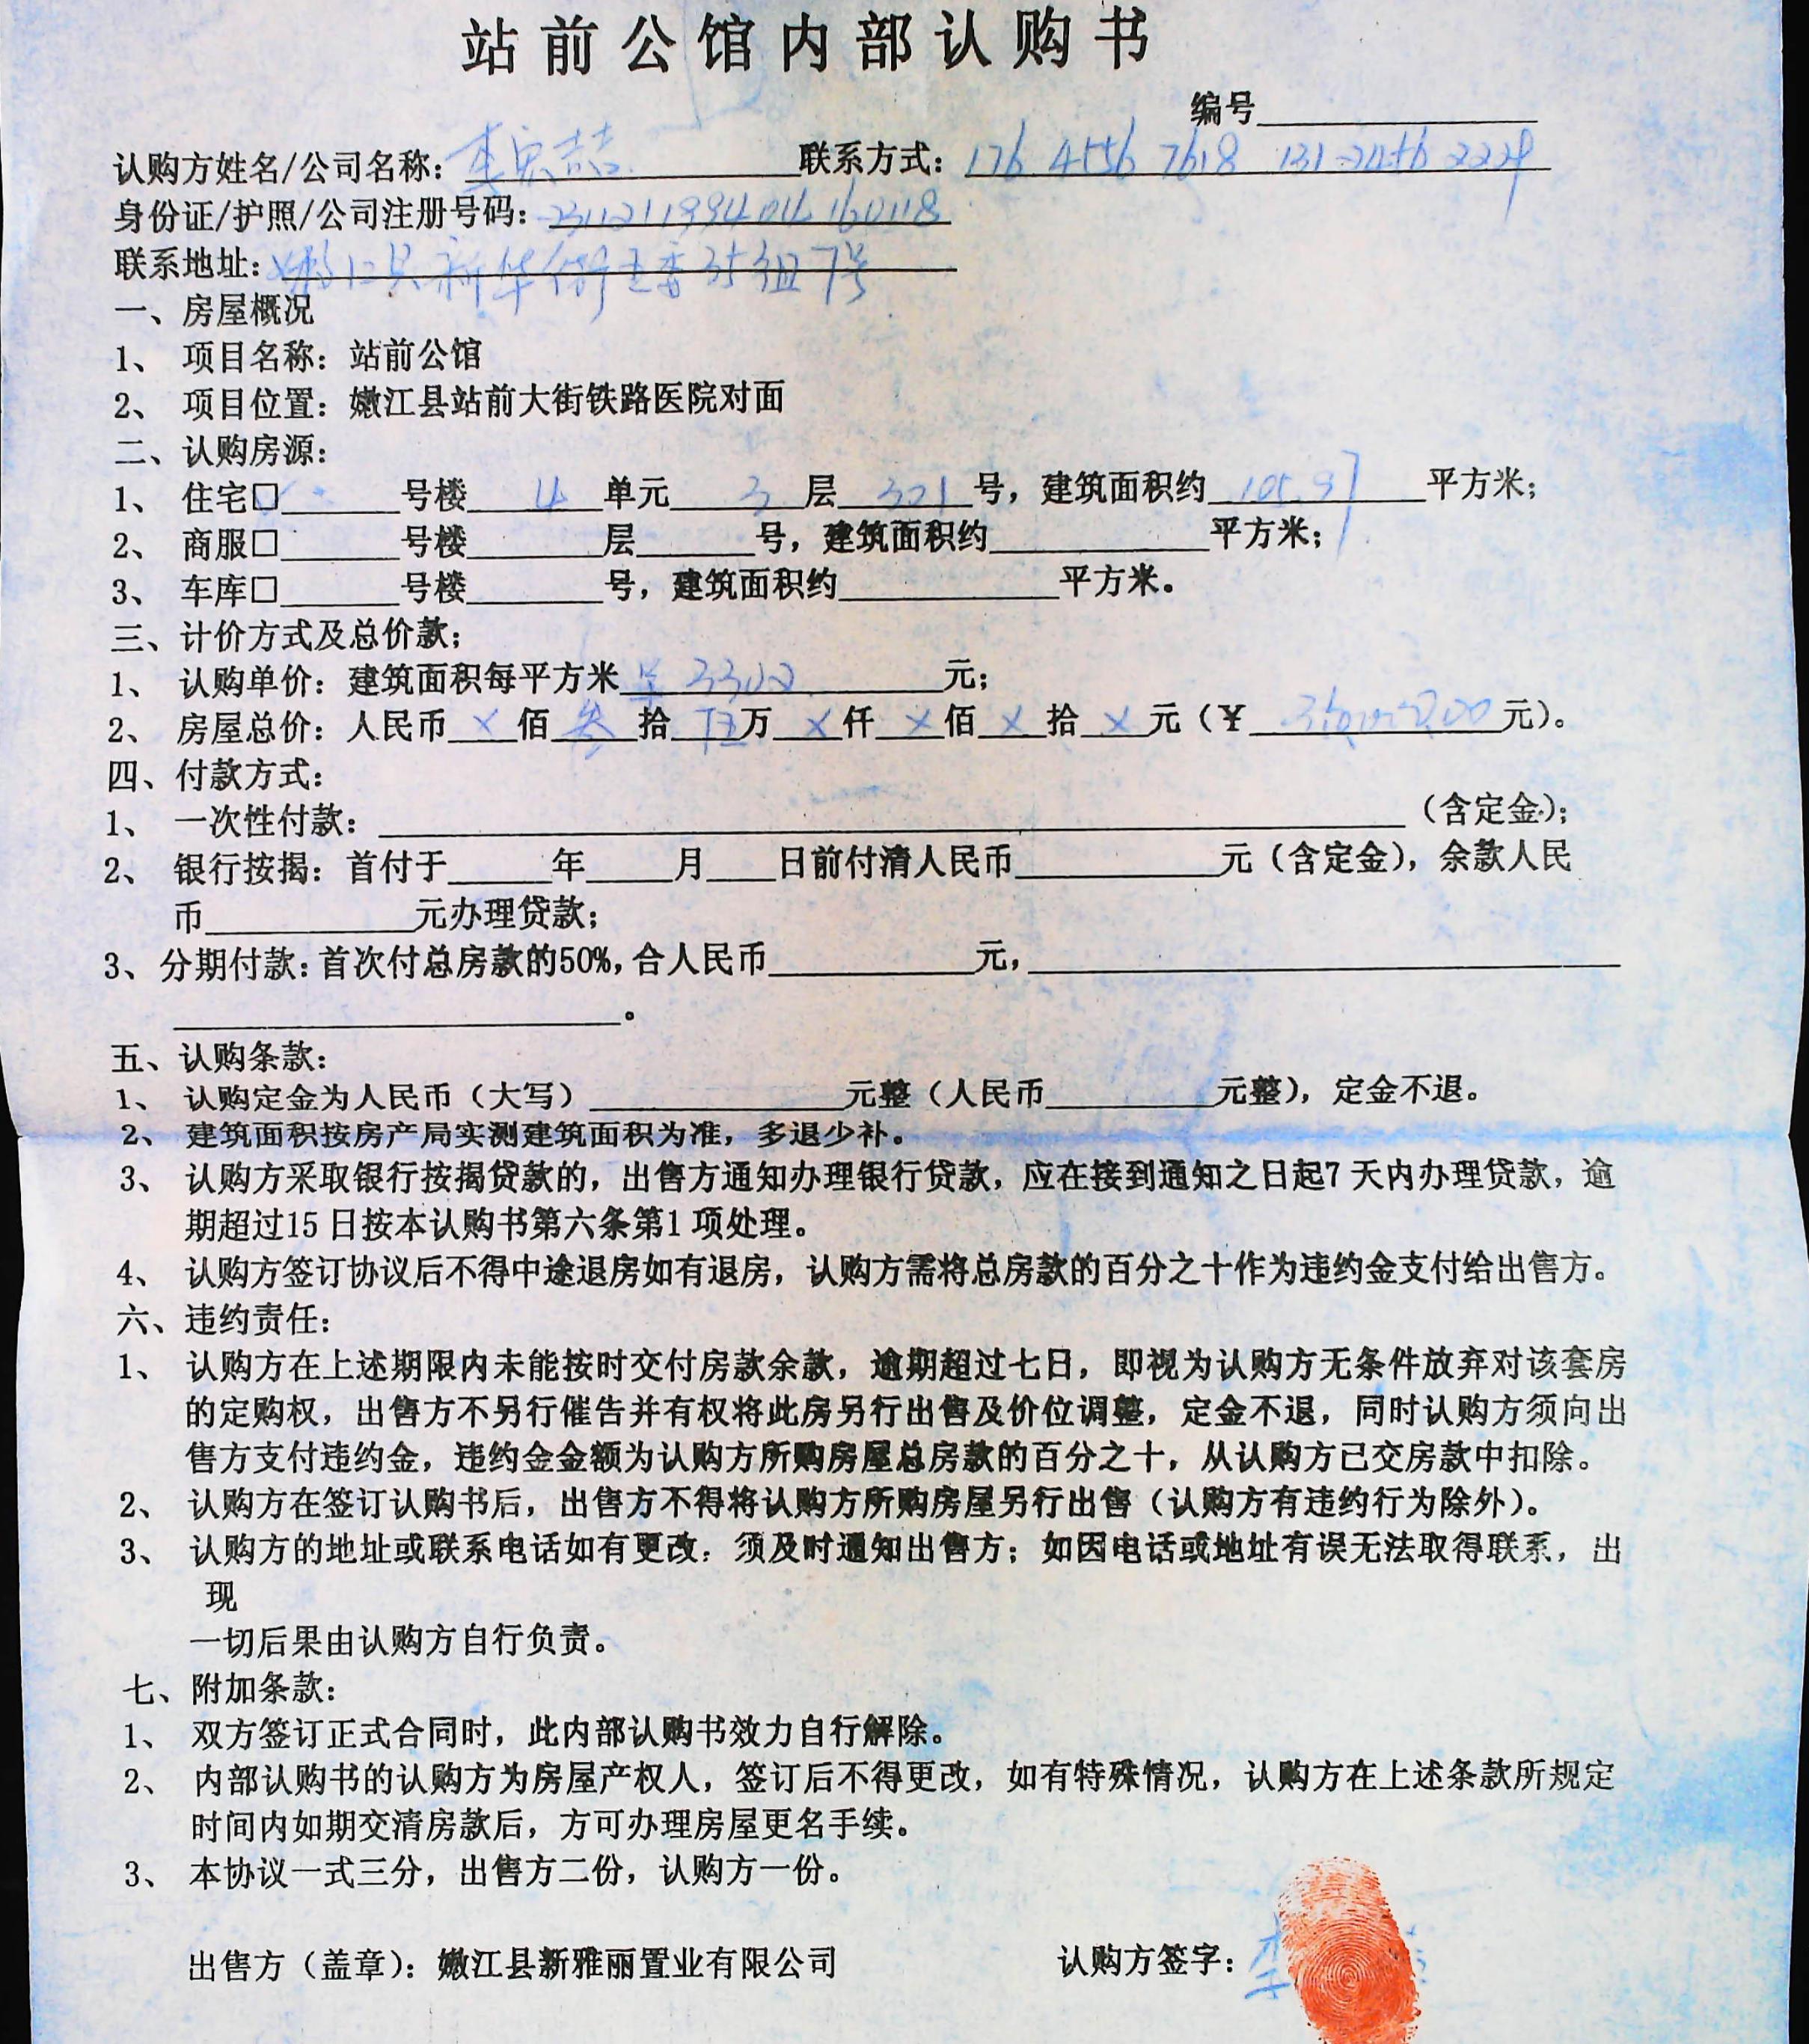 站前公馆内部认购书
编号
认购方姓名/公司名称: 李 喆 联系方式: 176 4556 7618 131 2456 222
身份证/护照/公司注册号码:
联系地址: 新华街 委 35组7号
一、房屋概况
1、 项目名称: 站前公馆
2、 项目位置: 嫩江县站前大街铁路医院对面
二、认购房源:
1、 住宅□ 号楼 4 单元 3 层 301 号, 建筑面积约 105.97 平方米;
2、 商服□ 号楼 层 号, 建筑面积约 平方米;
3、 车库□ 号楼 号, 建筑面积约 平方米。
三、计价方式及总价款;
1、 认购单价: 建筑面积每平方米 3302 元;
2、 房屋总价: 人民币 × 佰 叁 拾 伍 万 × 仟 × 佰 × 拾 × 元 (¥ 元)。
四、付款方式:
1、 一次性付款: (含定金);
2、 银行按揭: 首付于 年 月 日前付清人民币 元 (含定金), 余款人民
币 元办理贷款;
3、分期付款: 首次付总房款的50%, 合人民币 元,
。
五、认购条款:
1、 认购定金为人民币 (大写) 元整 (人民币 元整), 定金不退。
2、 建筑面积按房产局实测建筑面积为准, 多退少补。
3、 认购方采取银行按揭贷款的, 出售方通知办理银行贷款, 应在接到通知之日起7 天内办理贷款, 逾
期超过15 日按本认购书第六条第1 项处理。
4、 认购方签订协议后不得中途退房如有退房, 认购方需将总房款的百分之十作为违约金支付给出售方。
六、违约责任:
1、 认购方在上述期限内未能按时交付房款余款, 逾期超过七日, 即视为认购方无条件放弃对该套房
的定购权, 出售方不另行催告并有权将此房另行出售及价位调整, 定金不退, 同时认购方须向出
售方支付违约金, 违约金金额为认购方所购房屋总房款的百分之十, 从认购方已交房款中扣除。
2、 认购方在签订认购书后, 出售方不得将认购方所购房屋另行出售 (认购方有违约行为除外)。
3、 认购方的地址或联系电话如有更改, 须及时通知出售方; 如因电话或地址有误无法取得联系, 出
现
一切后果由认购方自行负责。
七、附加条款:
1、 双方签订正式合同时, 此内部认购书效力自行解除。
2、 内部认购书的认购方为房屋产权人, 签订后不得更改, 如有特殊情况, 认购方在上述条款所规定
时间内如期交清房款后, 方可办理房屋更名手续。
3、 本协议一式三分, 出售方二份, 认购方一份。
出售方 (盖章): 嫩江县新雅丽置业有限公司 认购方签字: 李